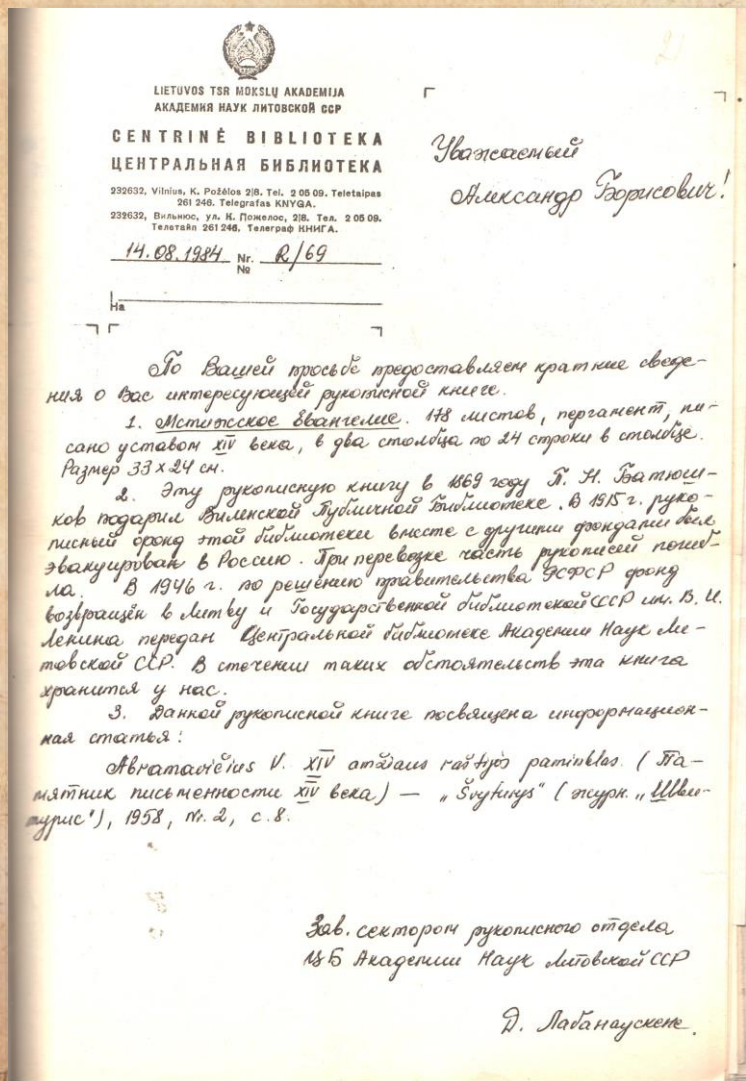 21
LIETUVOS TSR MOKSLŲ AKADEMIJA
АКАДЕМИЯ НАУК ЛИТОВСКОЙ ССР
CENTRINĖ BIBLIOTEKA
ЦЕНТРАЛЬНАЯ БИБЛИОТЕКА
232632, Vilnius, K. Poželos 2|8. Tel. 2 05 09. Teletaipas
261 246. Telegrafas KNYGA.
232632, Вильнюс, ул. К. Пожелос, 2|8. Тел. 2 05 09.
Телетайп 261 246, Телеграф КНИГА.
14.08.1984 Nr. № R/69
На
Уважаемый
Александр Борисович!
По Вашей просьбе предоставляем краткие сведе-
ния о Вас интересующей рукописной книге.
1. Мстижское Евангелие. 178 листов, пергамент, пи-
сано уставом XIV века, в два столбца по 24 строки в столбце.
Размер 33 x 24 см.
2. Эту рукописную книгу в 1869 году П. Н. Батюш-
ков подарил Виленской Публичной Библиотеке. В 1915 г. руко-
писный фонд этой библиотеки вместе с другими фондами был
эвакуирован в Россию. При перевозке часть рукописей погиб-
ла. В 1946 г. по решению правительства РСФСР фонд
возвращён в Литву и Государственной библиотекой СССР им. В. И.
Ленина передан Центральной библиотеке Академии Наук Ли-
товской ССР. В стечении таких обстоятельств эта книга
хранится у нас.
3. Данной рукописной книге посвящена информацион-
ная статья:
Abramavičius V. XIV amžiaus raštijos paminklas. (Па-
мятник письменности XIV века) — „Švyturys" (журн. „Шви-
турис"), 1958, Nr. 2, с. 8.
Зав. сектором рукописного отдела
ЦБ Академии Наук Литовской ССР
Д. Лабанаускене.